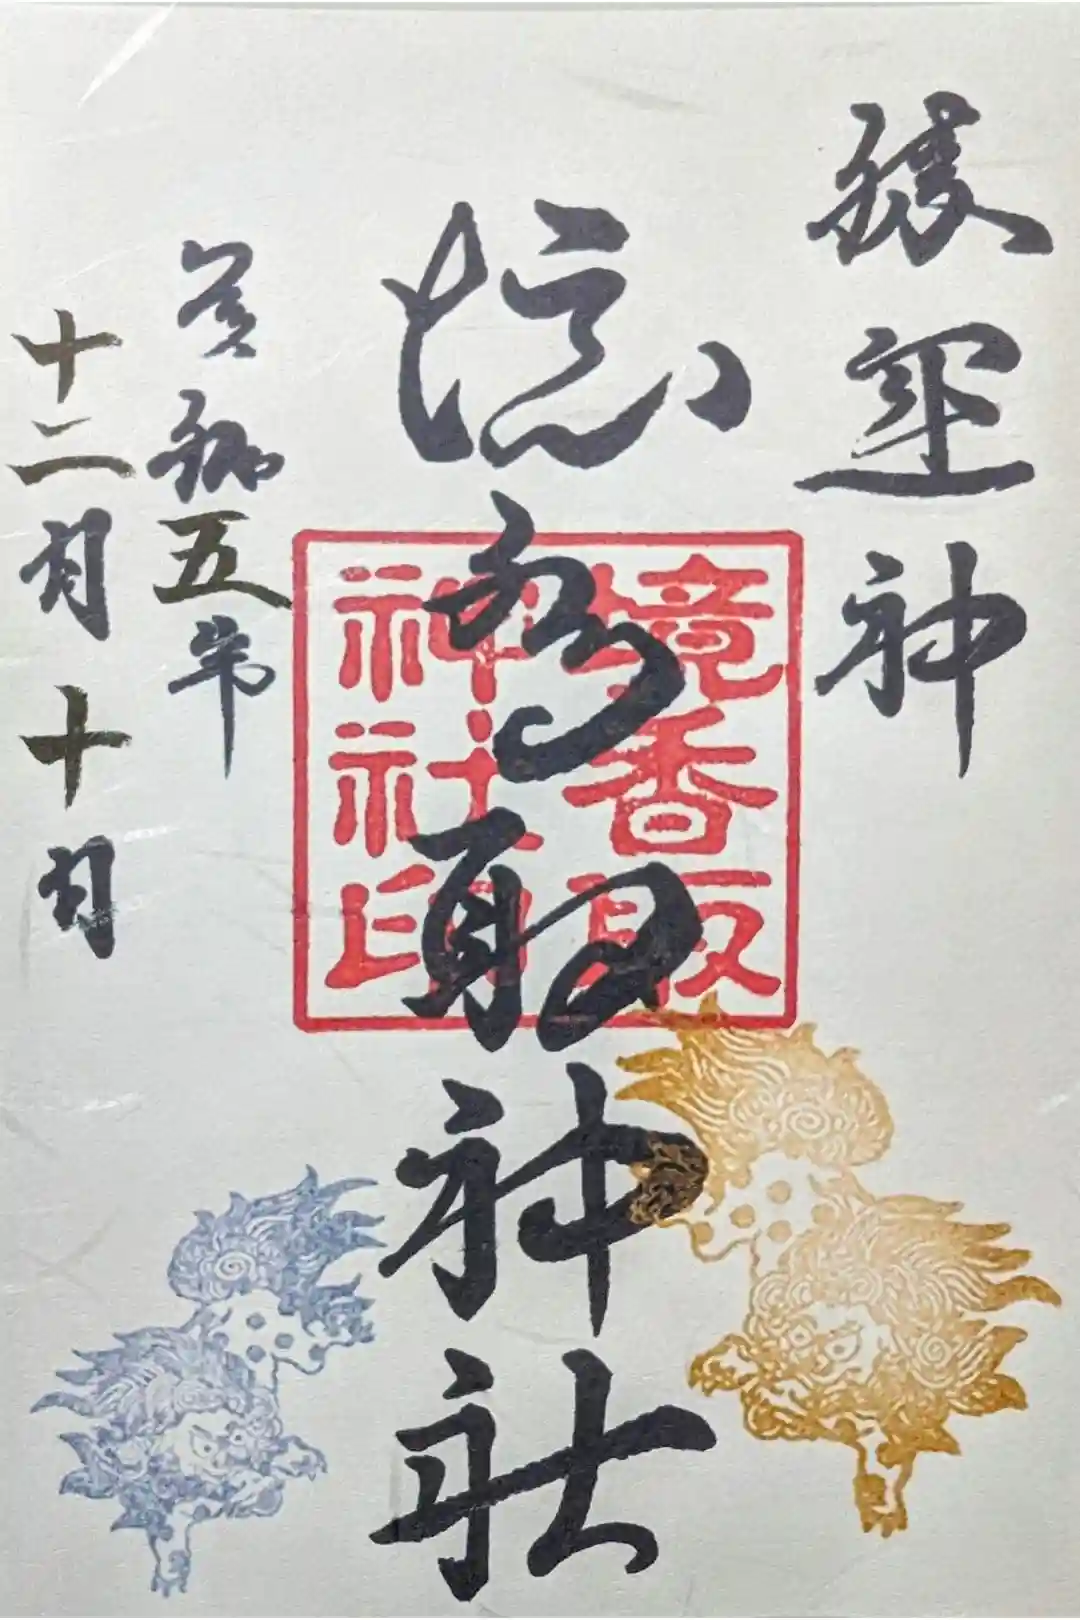 勝運神
境香取神社
境香取
神社印
令和五年
十二月十日